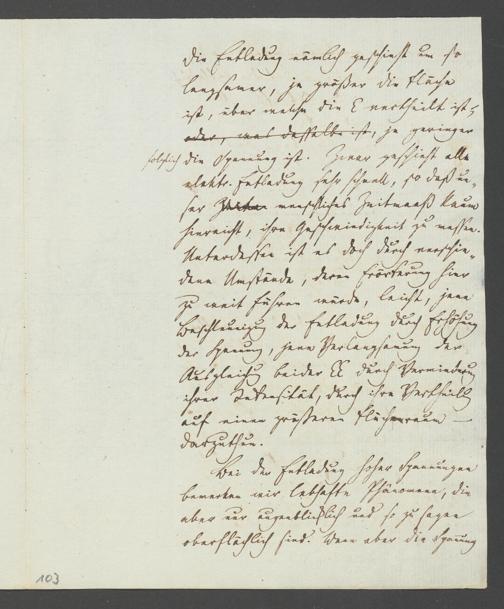 die Entladung nämlich geschieht um so
langsamer, je größer die Fläche
ist, über welche die E vertheilt ist,
oder, was dasselbe ist, je geringer
folglich die Spannung ist. Zwar geschieht alle
elektr. Entladung sehr schnell, so daß un-
ser menschliches Zeitmaaß kaum
hinreicht, ihre Geschwindigkeit zu messen.
Unterdessen ist es doch durch verschie-
dene Umstände, deren Erörterung hier
zu weit führen würde, leicht, jene
Beschleunigung der Entladung durch Erhöhung
der Spannung, jene Verlangsamung der
Ausgleichung beider EE durch Verminderung
ihrer Intensität, durch ihre Vertheilung
auf einen größeren Flächenraum —
darzuthun.
Bei der Entladung hoher Spannungen
bemerken wir lebhafte Phänomene, die
aber nur augenblicklich und so zu sagen
oberflächlich sind. Wenn aber die Spannung
103